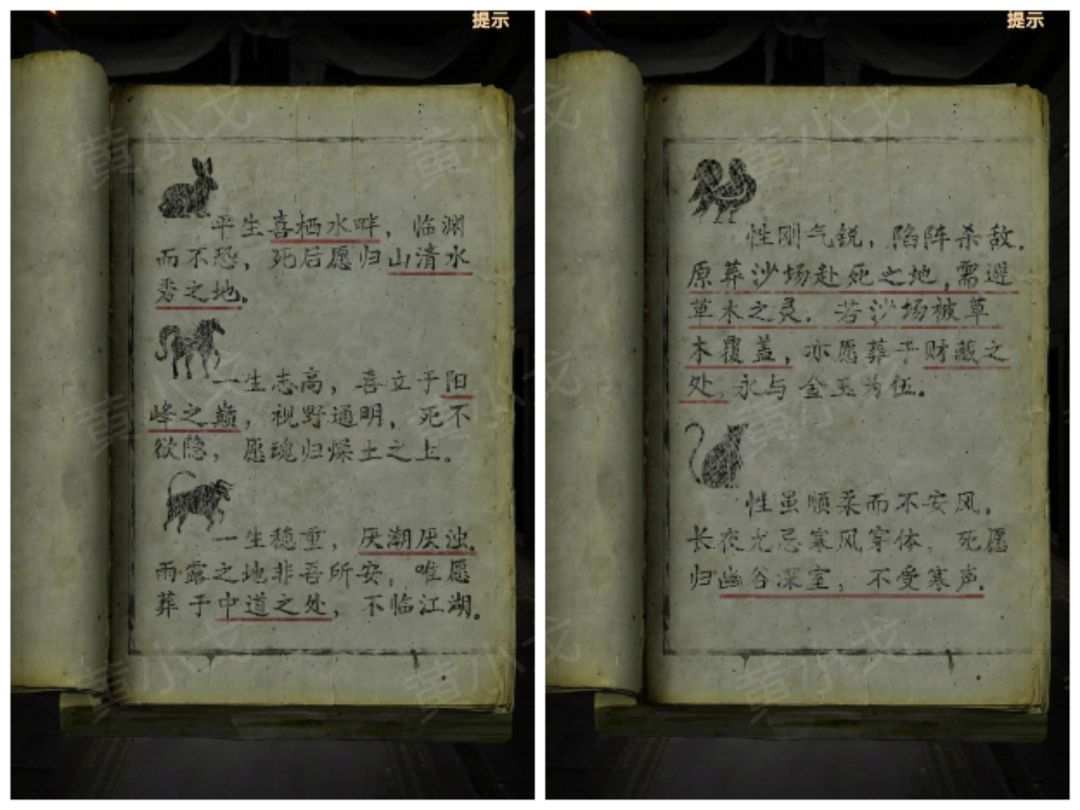 提示
平生喜栖水畔，临渊
而不恐，死后愿归山清水
秀之地。
一生志高，喜立于阳
峰之巅，视野通明，死不
欲隐，愿魂归燥土之上。
一生稳重，厌潮厌浊，
而露之地非吾所安，唯愿
葬于中道之处，不临江湖。
提示
性刚气锐，陷阵杀敌，
原葬沙场赴死之地，需避
草木之灵，若沙场被草
木覆盖，亦愿葬于财藏之
处，永与金玉为伍。
性虽顺柔而不安风，
长夜尤忌寒风穿体，死愿
归幽谷深室，不受寒声。
黄小戈